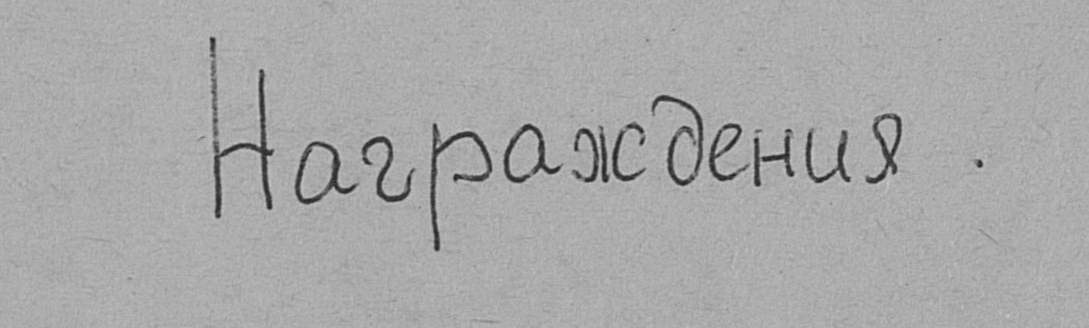 Награждения .